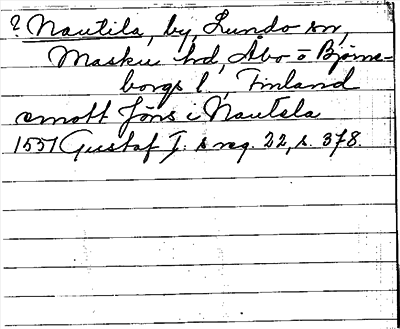 ? Nautila, by, Lundo sn,
Masku hd, Åbo o Björne-
borgs l, Finland
emott Jöns i Nautela
1551 Gustaf I: s reg. 22, s. 378.